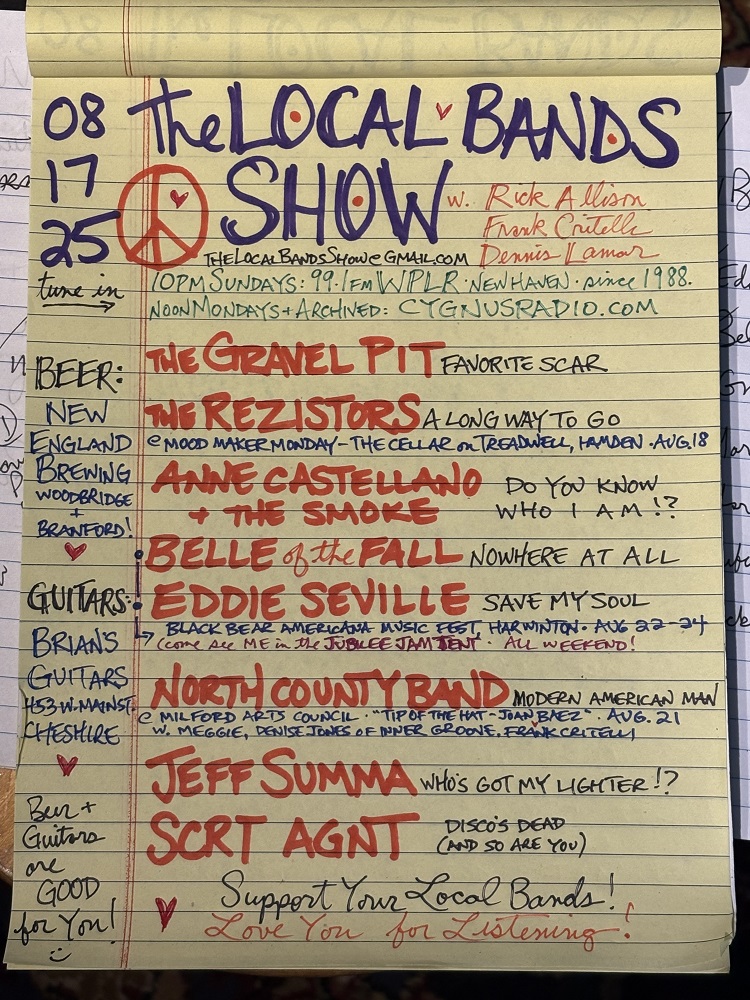 08
17
25
The LOCAL BANDS
SHOW
w. Rick Allison
Frank Critelli
Dennis Lamar
THELOCALBANDSSHOW@GMAIL.COM
tune in
10PM SUNDAYS: 99.1FM WPLR · NEW HAVEN · since 1988.
NOON MONDAYS + ARCHIVED: CYGNUSRADIO.COM
BEER:
NEW
ENGLAND
BREWING
WOODBRIDGE
+
BRANFORD!
GUITARS:
BRIAN'S
GUITARS
453 W. MAIN ST.
CHESHIRE
Beer +
Guitars
are
GOOD
for You!
THE GRAVEL PIT FAVORITE SCAR
THE REZISTORS A LONG WAY TO GO
@ MOOD MAKER MONDAY - THE CELLAR on TREADWELL, HAMDEN · AUG. 18
ANNE CASTELLANO DO YOU KNOW
+ THE SMOKE WHO I AM !?
BELLE of the FALL NOWHERE AT ALL
EDDIE SEVILLE SAVE MY SOUL
BLACK BEAR AMERICANA MUSIC FEST, HARWINTON · AUG 22-24
(come see ME in the JUBILEE JAM TENT · ALL WEEKEND!
NORTH COUNTY BAND MODERN AMERICAN MAN
@ MILFORD ARTS COUNCIL · "TIP OF THE HAT - JOAN BAEZ" · AUG. 21
W. MEGGIE, DENISE JONES OF INNER GROOVE, FRANK CRITELLI
JEFF SUMMA WHO'S GOT MY LIGHTER !?
SCRT AGNT DISCO'S DEAD
(AND SO ARE YOU)
Support Your Local Bands!
Love You for Listening!